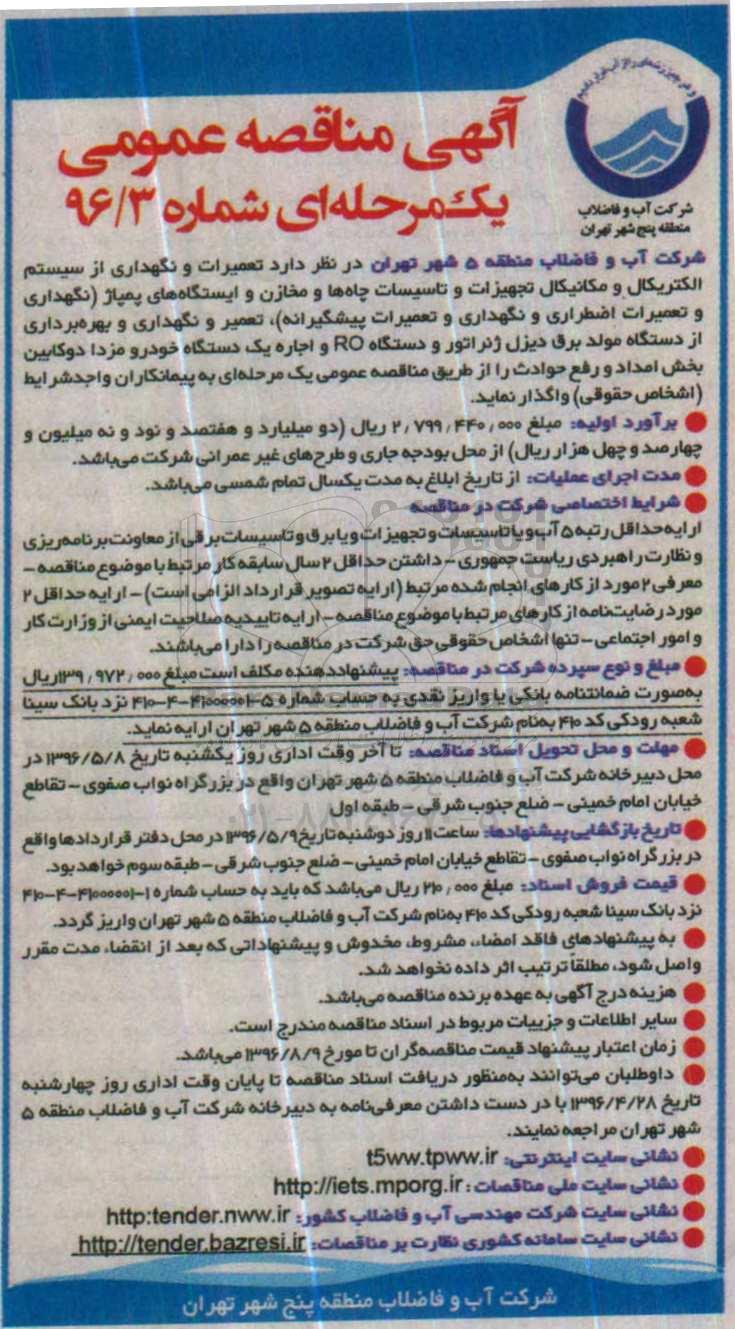 و من الماء کل شیء حی
آگهی مناقصه عمومی
یک‌مرحله‌ای شماره ۹۶/۳
شرکت آب و فاضلاب
منطقه پنج شهر تهران
شرکت آب و فاضلاب منطقه ۵ شهر تهران در نظر دارد تعمیرات و نگهداری از سیستم
الکتریکال و مکانیکال تجهیزات و تاسیسات چاه‌ها و مخازن و ایستگاه‌های پمپاژ (نگهداری
و تعمیرات اضطراری و نگهداری و تعمیرات پیشگیرانه)، تعمیر و نگهداری و بهره‌برداری
از دستگاه مولد برق دیزل ژنراتور و دستگاه RO و اجاره یک دستگاه خودرو مزدا دوکابین
بخش امداد و رفع حوادث را از طریق مناقصه عمومی یک مرحله‌ای به پیمانکاران واجدشرایط
(اشخاص حقوقی) واگذار نماید.
برآورد اولیه: مبلغ ۲٫۷۹۹٫۴۴۰٫۰۰۰ ریال (دو میلیارد و هفتصد و نود و نه میلیون و
چهارصد و چهل هزار ریال) از محل بودجه جاری و طرح‌های غیر عمرانی شرکت می‌باشد.
مدت اجرای عملیات: از تاریخ ابلاغ به مدت یکسال تمام شمسی می‌باشد.
شرایط اختصاصی شرکت در مناقصه
ارایه حداقل رتبه ۵ آب و یا تاسیسات و تجهیزات و یا برق و تاسیسات برقی از معاونت برنامه‌ریزی
و نظارت راهبردی ریاست جمهوری – داشتن حداقل ۲ سال سابقه کار مرتبط با موضوع مناقصه –
معرفی ۲ مورد از کارهای انجام شده مرتبط (ارایه تصویر قرارداد الزامی است) – ارایه حداقل ۲
مورد رضایت‌نامه از کارهای مرتبط با موضوع مناقصه – ارایه تاییدیه صلاحیت ایمنی از وزارت کار
و امور اجتماعی – تنها اشخاص حقوقی حق شرکت در مناقصه را دارا می‌باشند.
مبلغ و نوع سپرده شرکت در مناقصه: پیشنهاددهنده مکلف است مبلغ ۱۳۹٫۹۷۲٫۰۰۰ ریال
به‌صورت ضمانتنامه بانکی یا واریز نقدی به حساب شماره ۵-۴۱۰-۴-۴۱۰۰۰۰۰۱ نزد بانک سینا
شعبه رودکی کد ۴۱۰ به‌نام شرکت آب و فاضلاب منطقه ۵ شهر تهران ارایه نماید.
مهلت و محل تحویل اسناد مناقصه: تا آخر وقت اداری روز یکشنبه تاریخ ۱۳۹۶/۵/۸ در
محل دبیرخانه شرکت آب و فاضلاب منطقه ۵ شهر تهران واقع در بزرگراه نواب صفوی – تقاطع
خیابان امام خمینی – ضلع جنوب شرقی – طبقه اول
تاریخ بازگشایی پیشنهادها: ساعت ۱۱ روز دوشنبه تاریخ ۱۳۹۶/۵/۹ در محل دفتر قراردادها واقع
در بزرگراه نواب صفوی – تقاطع خیابان امام خمینی – ضلع جنوب شرقی – طبقه سوم خواهد بود.
قیمت فروش اسناد: مبلغ ۲۱۰٫۰۰۰ ریال می‌باشد که باید به حساب شماره ۱-۴۱۰-۴-۴۱۰۰۰۰۰۱
نزد بانک سینا شعبه رودکی کد ۴۱۰ به‌نام شرکت آب و فاضلاب منطقه ۵ شهر تهران واریز گردد.
به پیشنهادهای فاقد امضاء، مشروط، مخدوش و پیشنهاداتی که بعد از انقضاء مدت مقرر
واصل شود، مطلقاً ترتیب اثر داده نخواهد شد.
هزینه درج آگهی به عهده برنده مناقصه می‌باشد.
سایر اطلاعات و جزییات مربوط در اسناد مناقصه مندرج است.
زمان اعتبار پیشنهاد قیمت مناقصه‌گران تا مورخ ۱۳۹۶/۸/۹ می‌باشد.
داوطلبان می‌توانند به‌منظور دریافت اسناد مناقصه تا پایان وقت اداری روز چهارشنبه
تاریخ ۱۳۹۶/۴/۲۸ با در دست داشتن معرفی‌نامه به دبیرخانه شرکت آب و فاضلاب منطقه ۵
شهر تهران مراجعه نمایند.
نشانی سایت اینترنتی: t5ww.tpww.ir
نشانی سایت ملی مناقصات: http://iets.mporg.ir
نشانی سایت شرکت مهندسی آب و فاضلاب کشور: http:tender.nww.ir
نشانی سایت سامانه کشوری نظارت بر مناقصات: http://tender.bazresi.ir
شرکت آب و فاضلاب منطقه پنج شهر تهران